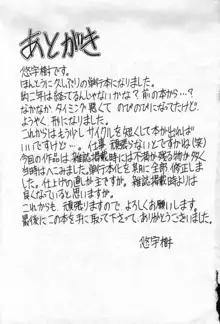 あとがき
悠宇樹です。
ほんとうに久しぶりの単行本になりました。
約二年は経ってるんじゃないかな？前の本から…？
なかなか、タイミング悪くて のびのびになってたけど、
ようやく 形になりました。
これからはもう少しサイクルを短くして本が出れば
いいですけど…。仕事 頑張らないとですかね(笑)
今回の作品は 雑誌掲載時には不満が残る物が多く
当時はへこみました。単行本化を期に全部 修正しま
した。仕上げの直しが主ですが。雑誌掲載時よりは
良くなっていると思いますが。
これからも、頑張りますので、よろしくお願いします。
最後にこの本を手に取って下さって、ありがとうございました。
悠宇樹